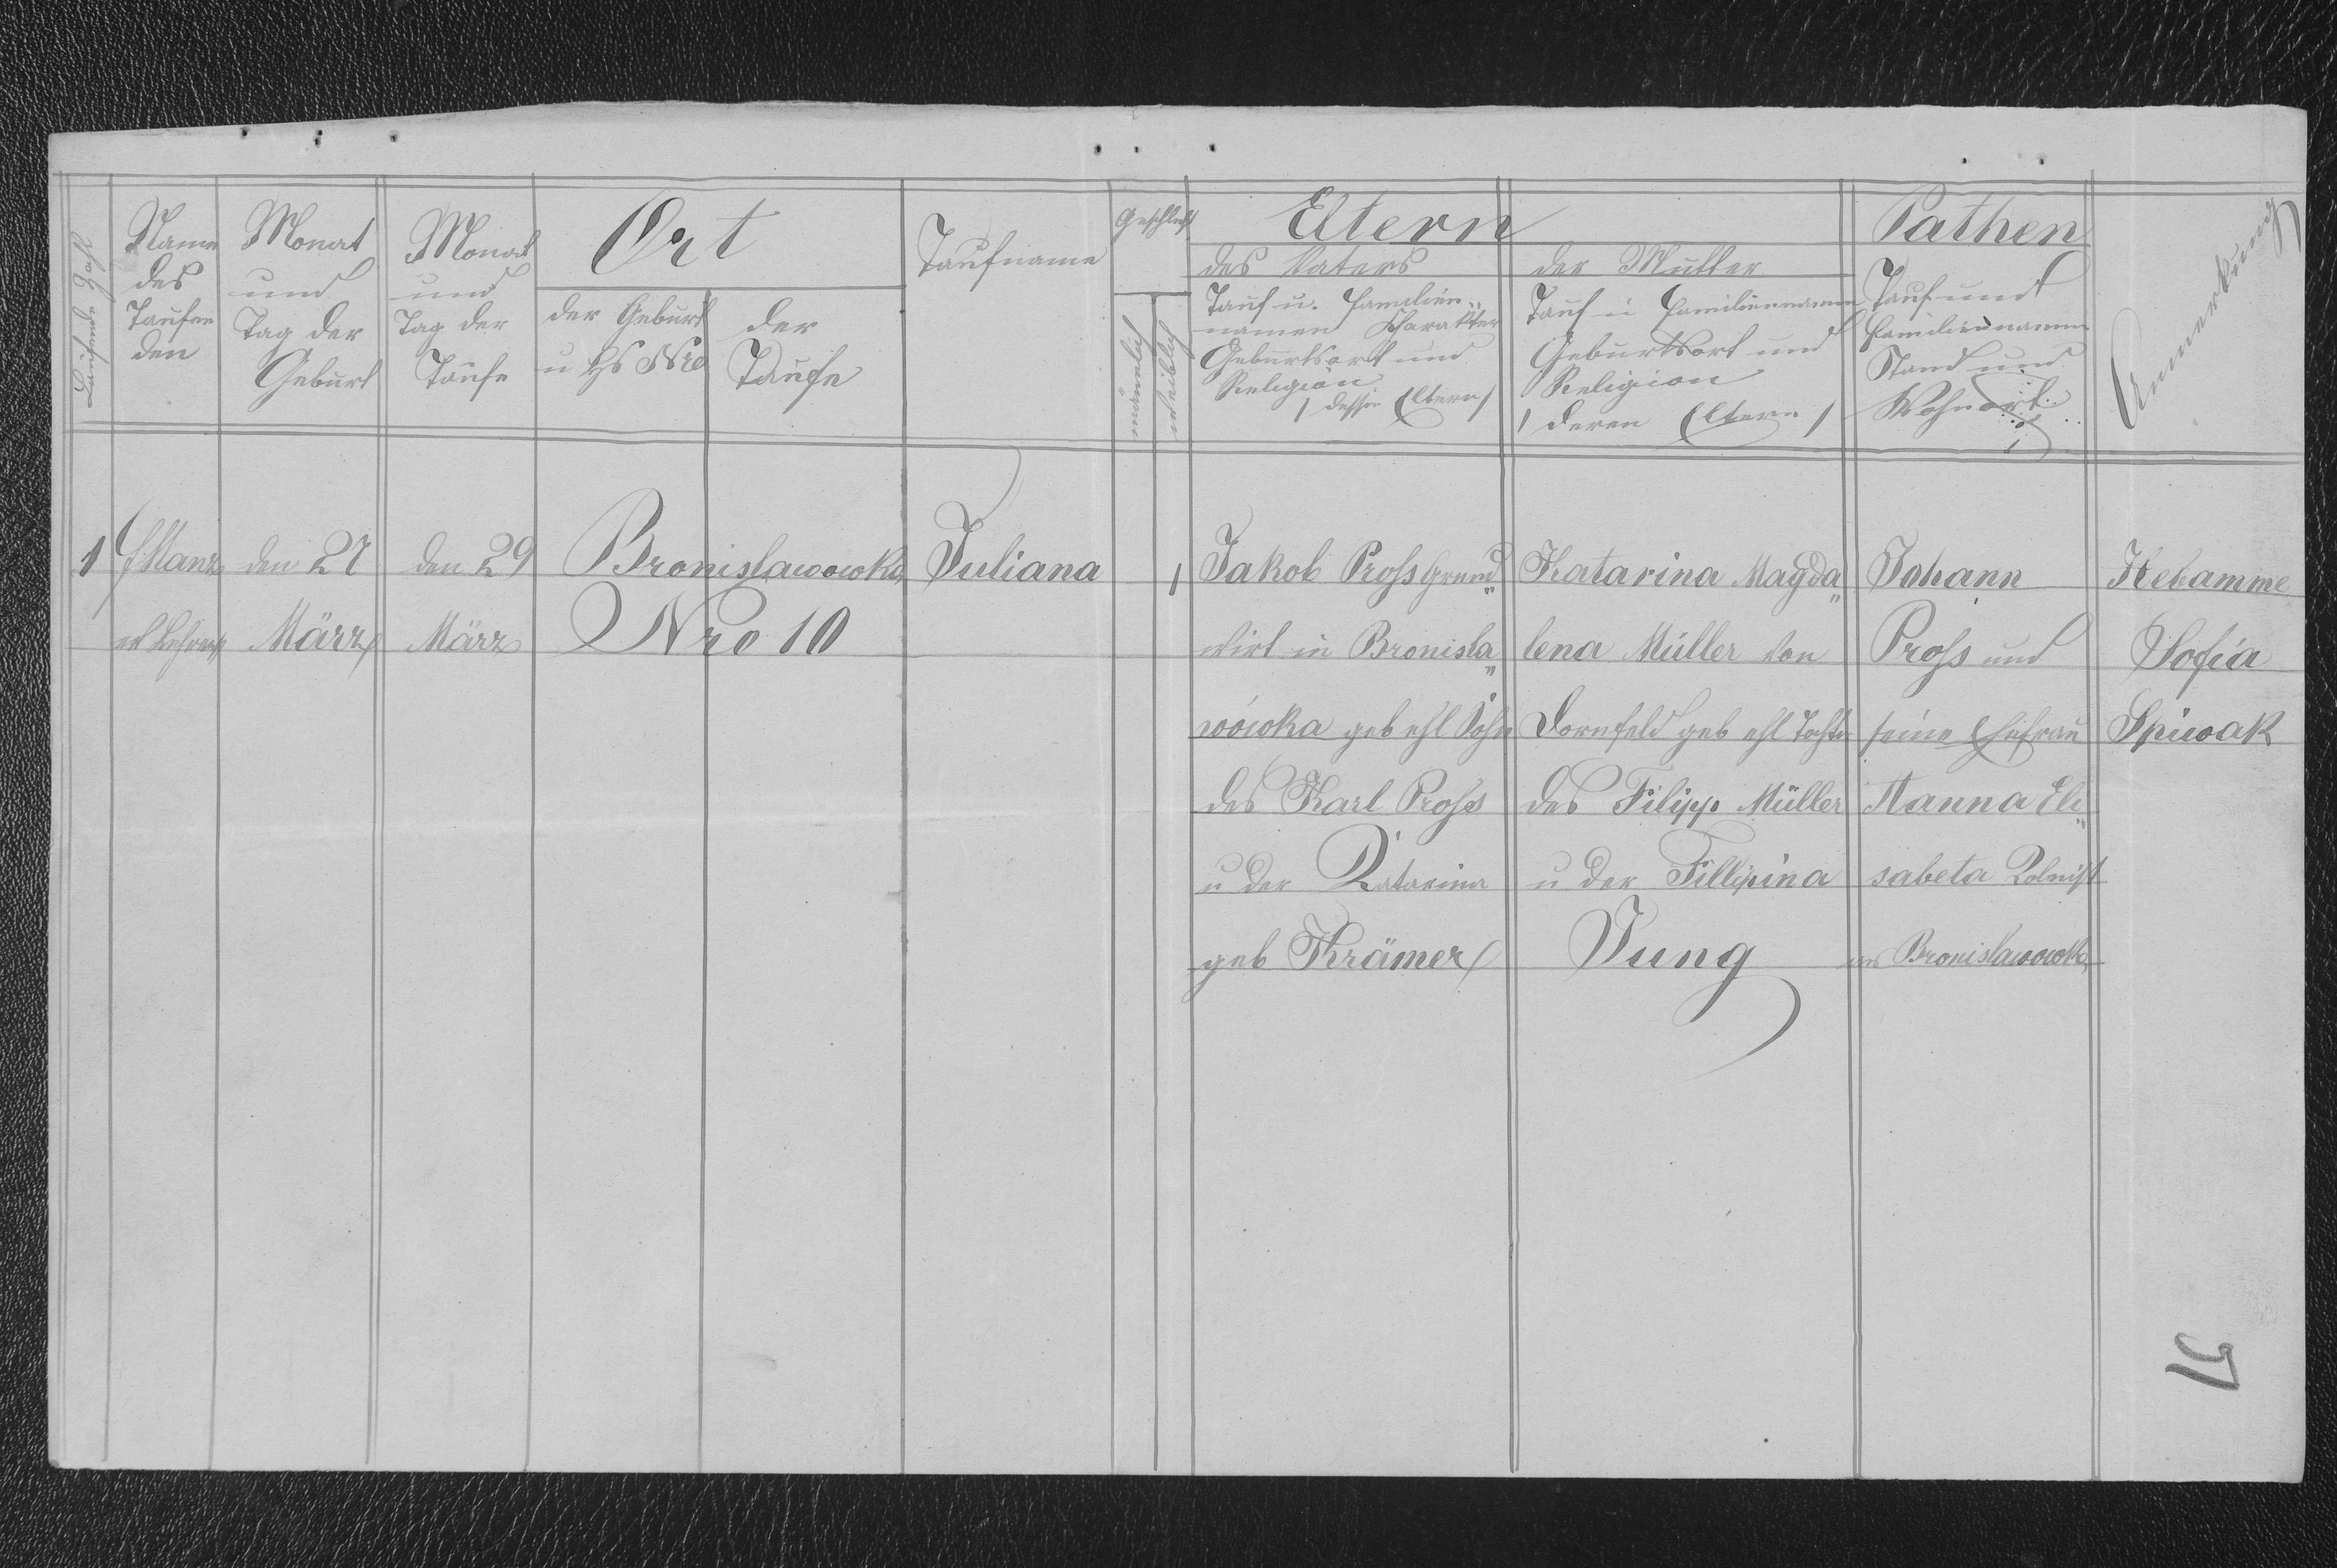 Laufende Zahl
Name
des
Taufen
den
Monat
und
Tag der
Geburt
Monat
und
Tag der
Taufe
Ort
der Geburt
u Hs Nro
der
Taufe
Taufname
Geschlecht
männlich
weiblich
Eltern
des Vaters
Tauf u. Familien-
namen Charakter
Geburtsort und
Religion
/ dessen Eltern /
der Mutter
Tauf u Familiennamen
Geburtsort und
Religion
/ deren Eltern /
Pathen
Tauf und
Familiennamen
Stand und
Wohnort
Anmerkung
1
den 27
März
den 29
März
Bronislawowka
Nro 10
Juliana
1
Jakob Pross Grund„
wirt in Bronisla„
wówka geb ehl Sohn
des Karl Pross
u der Katarina
geb Krämer
Katarina Magda„
lena Müller von
Dornfeld geb ehl Tochter
des Filipp Müller
u der Fillipina
Jung
Johann
Pross und
seine Ehefrau
Hanna Eli„
sabeta Kolonist
aus Bronislawowka
Hebamme
Sofia
Spiwak